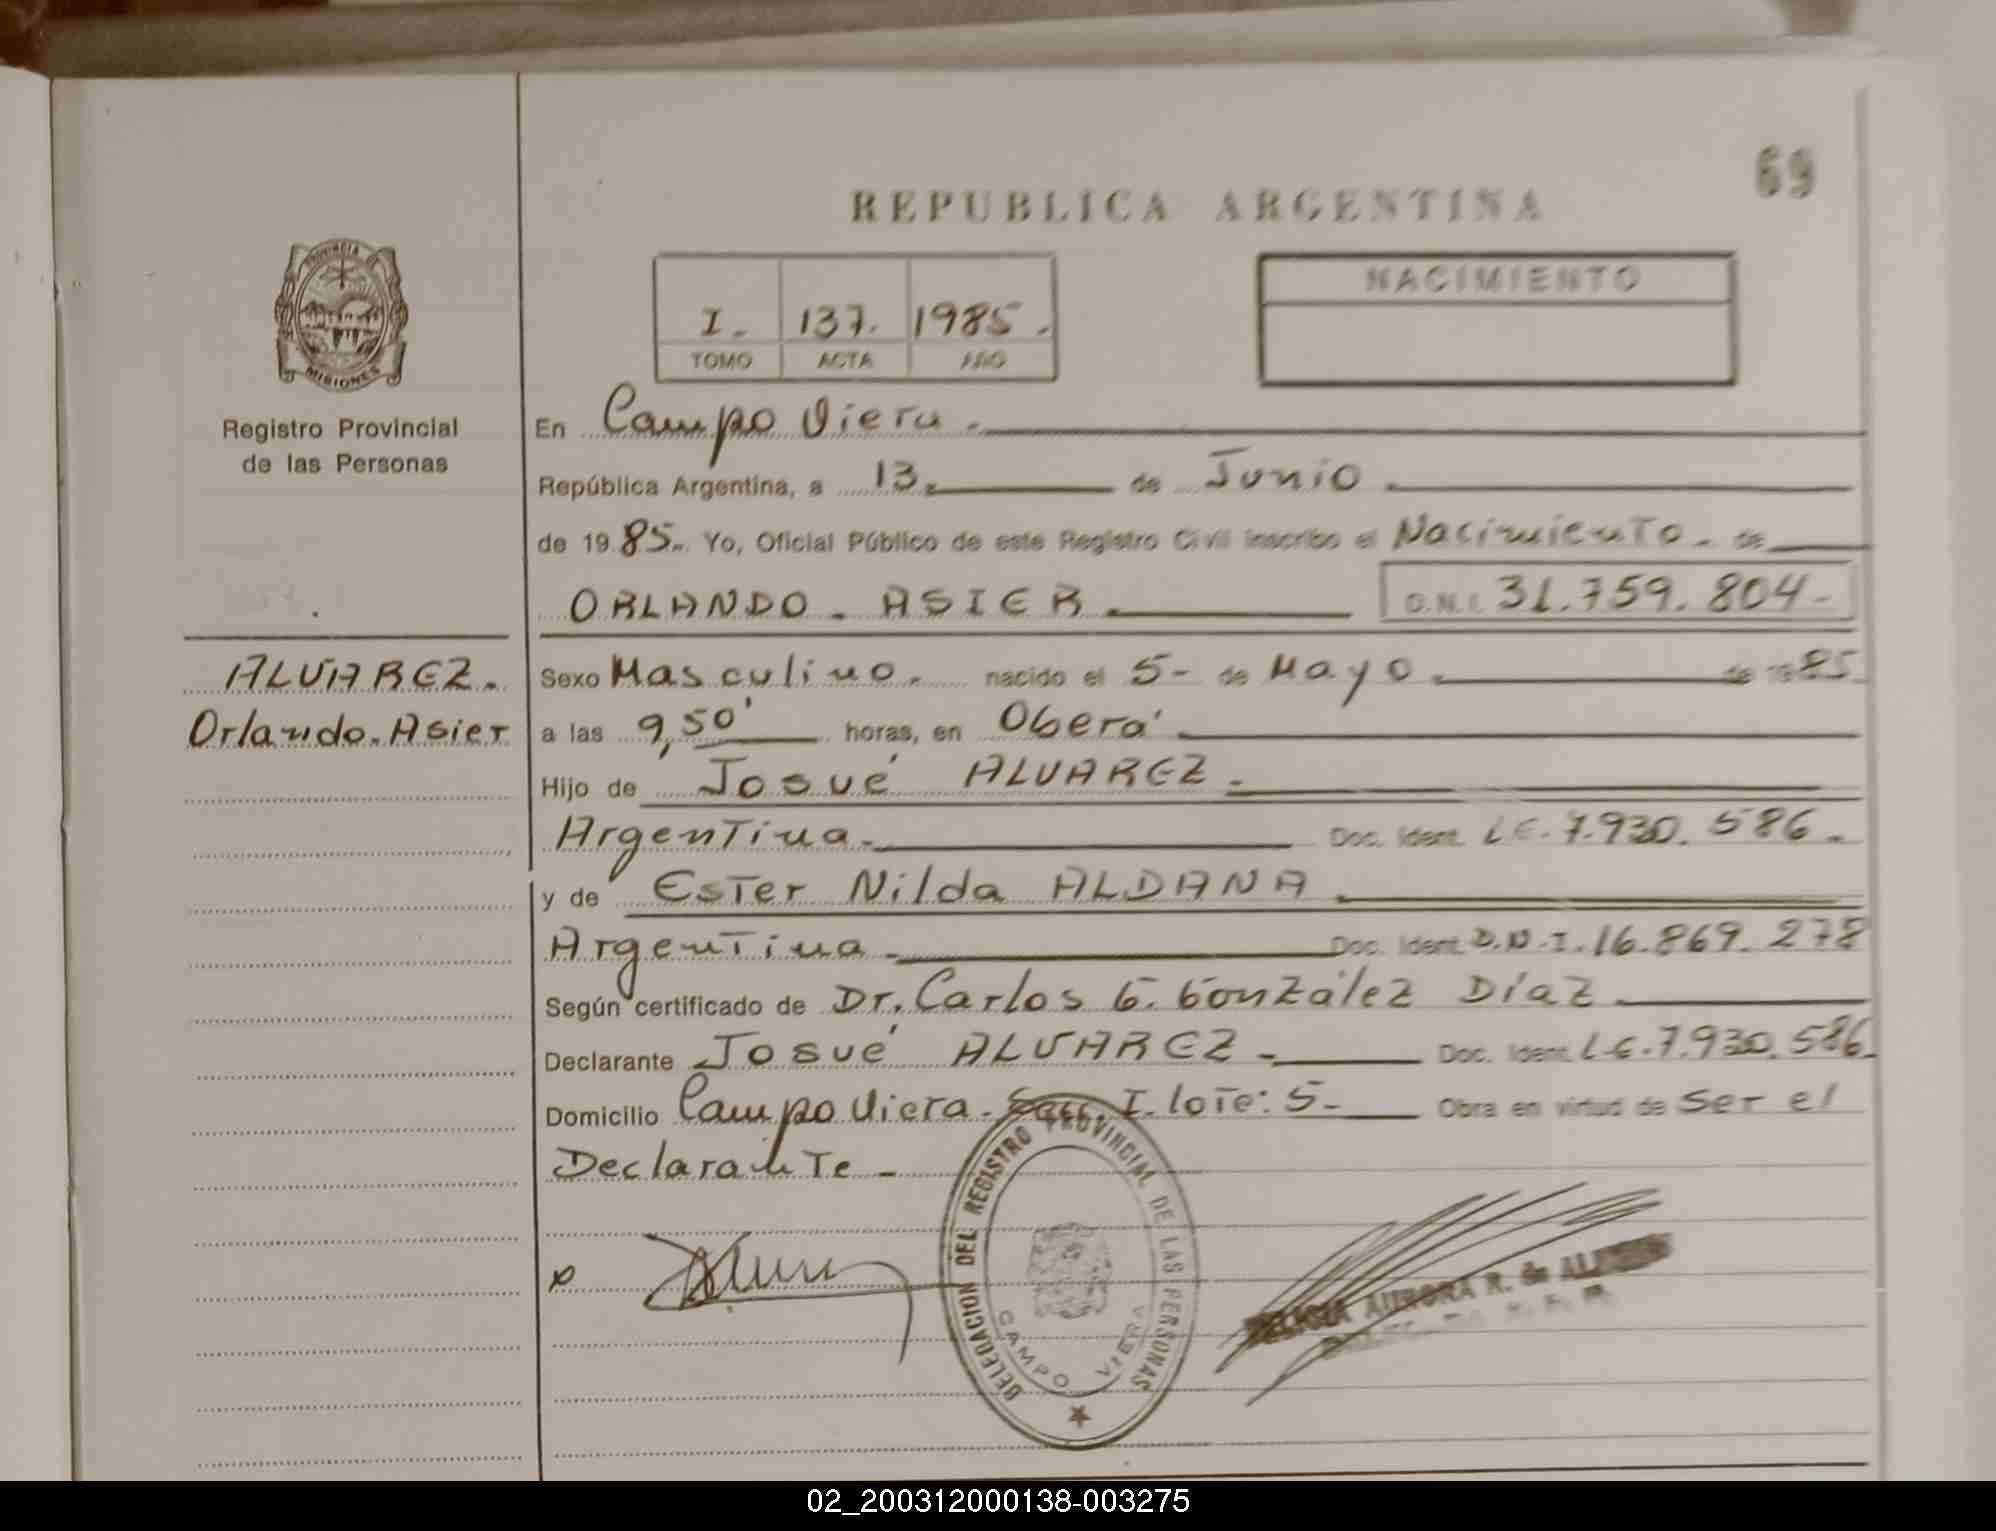 69
REPUBLICA ARGENTINA
PROVINCIA DE
MISIONES
Registro Provincial
de las Personas
I. 137. 1985.
TOMO ACTA AÑO
NACIMIENTO
En Campo Viera.
República Argentina, a 13. de Junio
de 1985. Yo, Oficial Público de este Registro Civil inscribo el Nacimiento. de
ORLANDO. ASIER. D.N.I. 31.759.804-
ALVAREZ.
Orlando. Asier
Sexo Masculino. nacido el 5- de Mayo. de 1985
a las 9,50' horas, en Oberá
Hijo de Josué ALVAREZ.
Argentina. Doc. Ident. L.E. 7.930.586.
y de Ester Nilda ALDANA.
Argentina. Doc. Ident. D.N.I. 16.869.278
Según certificado de Dr. Carlos G. González Díaz
Declarante Josué ALVAREZ. Doc. Ident. L.E. 7.930.586.
Domicilio Campo Viera. Secc. I. lote: 5- Obra en virtud de Ser el
Declarante-
DELEGACION DEL REGISTRO PROVINCIAL DE LAS PERSONAS
CAMPO VIERA
AURORA R. de
02_200312000138-003275